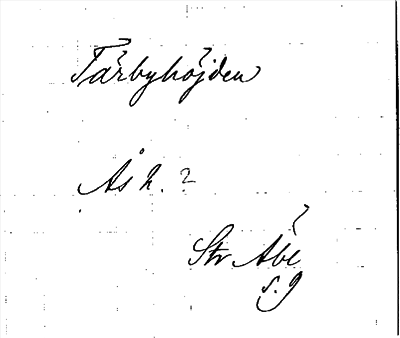 Tärbyhöjden
Ås h. ?
Str Äbl
s. 9